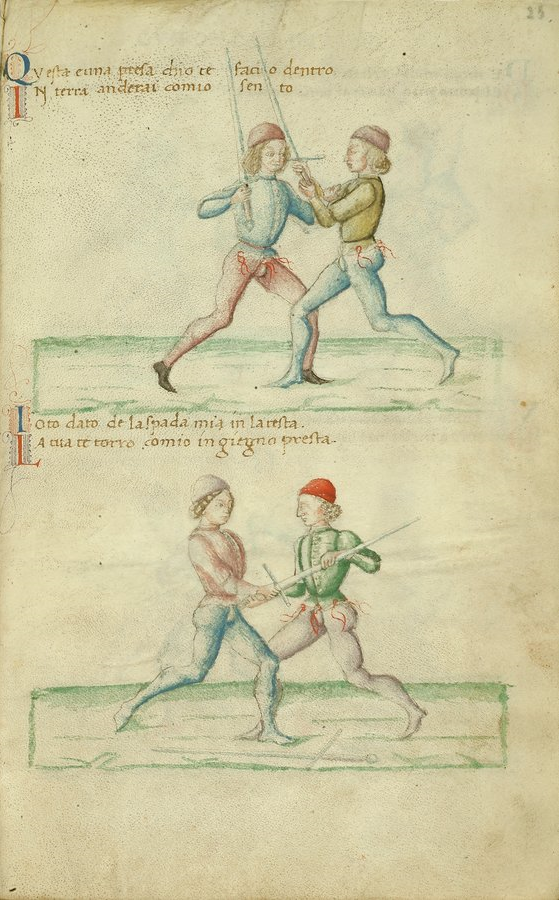 23
Questa e una presa chio te facio dentro
In terra anderai comio sento
Io to dato de la spada mia in la testa.
La tua te torro comio ingiegno presta.